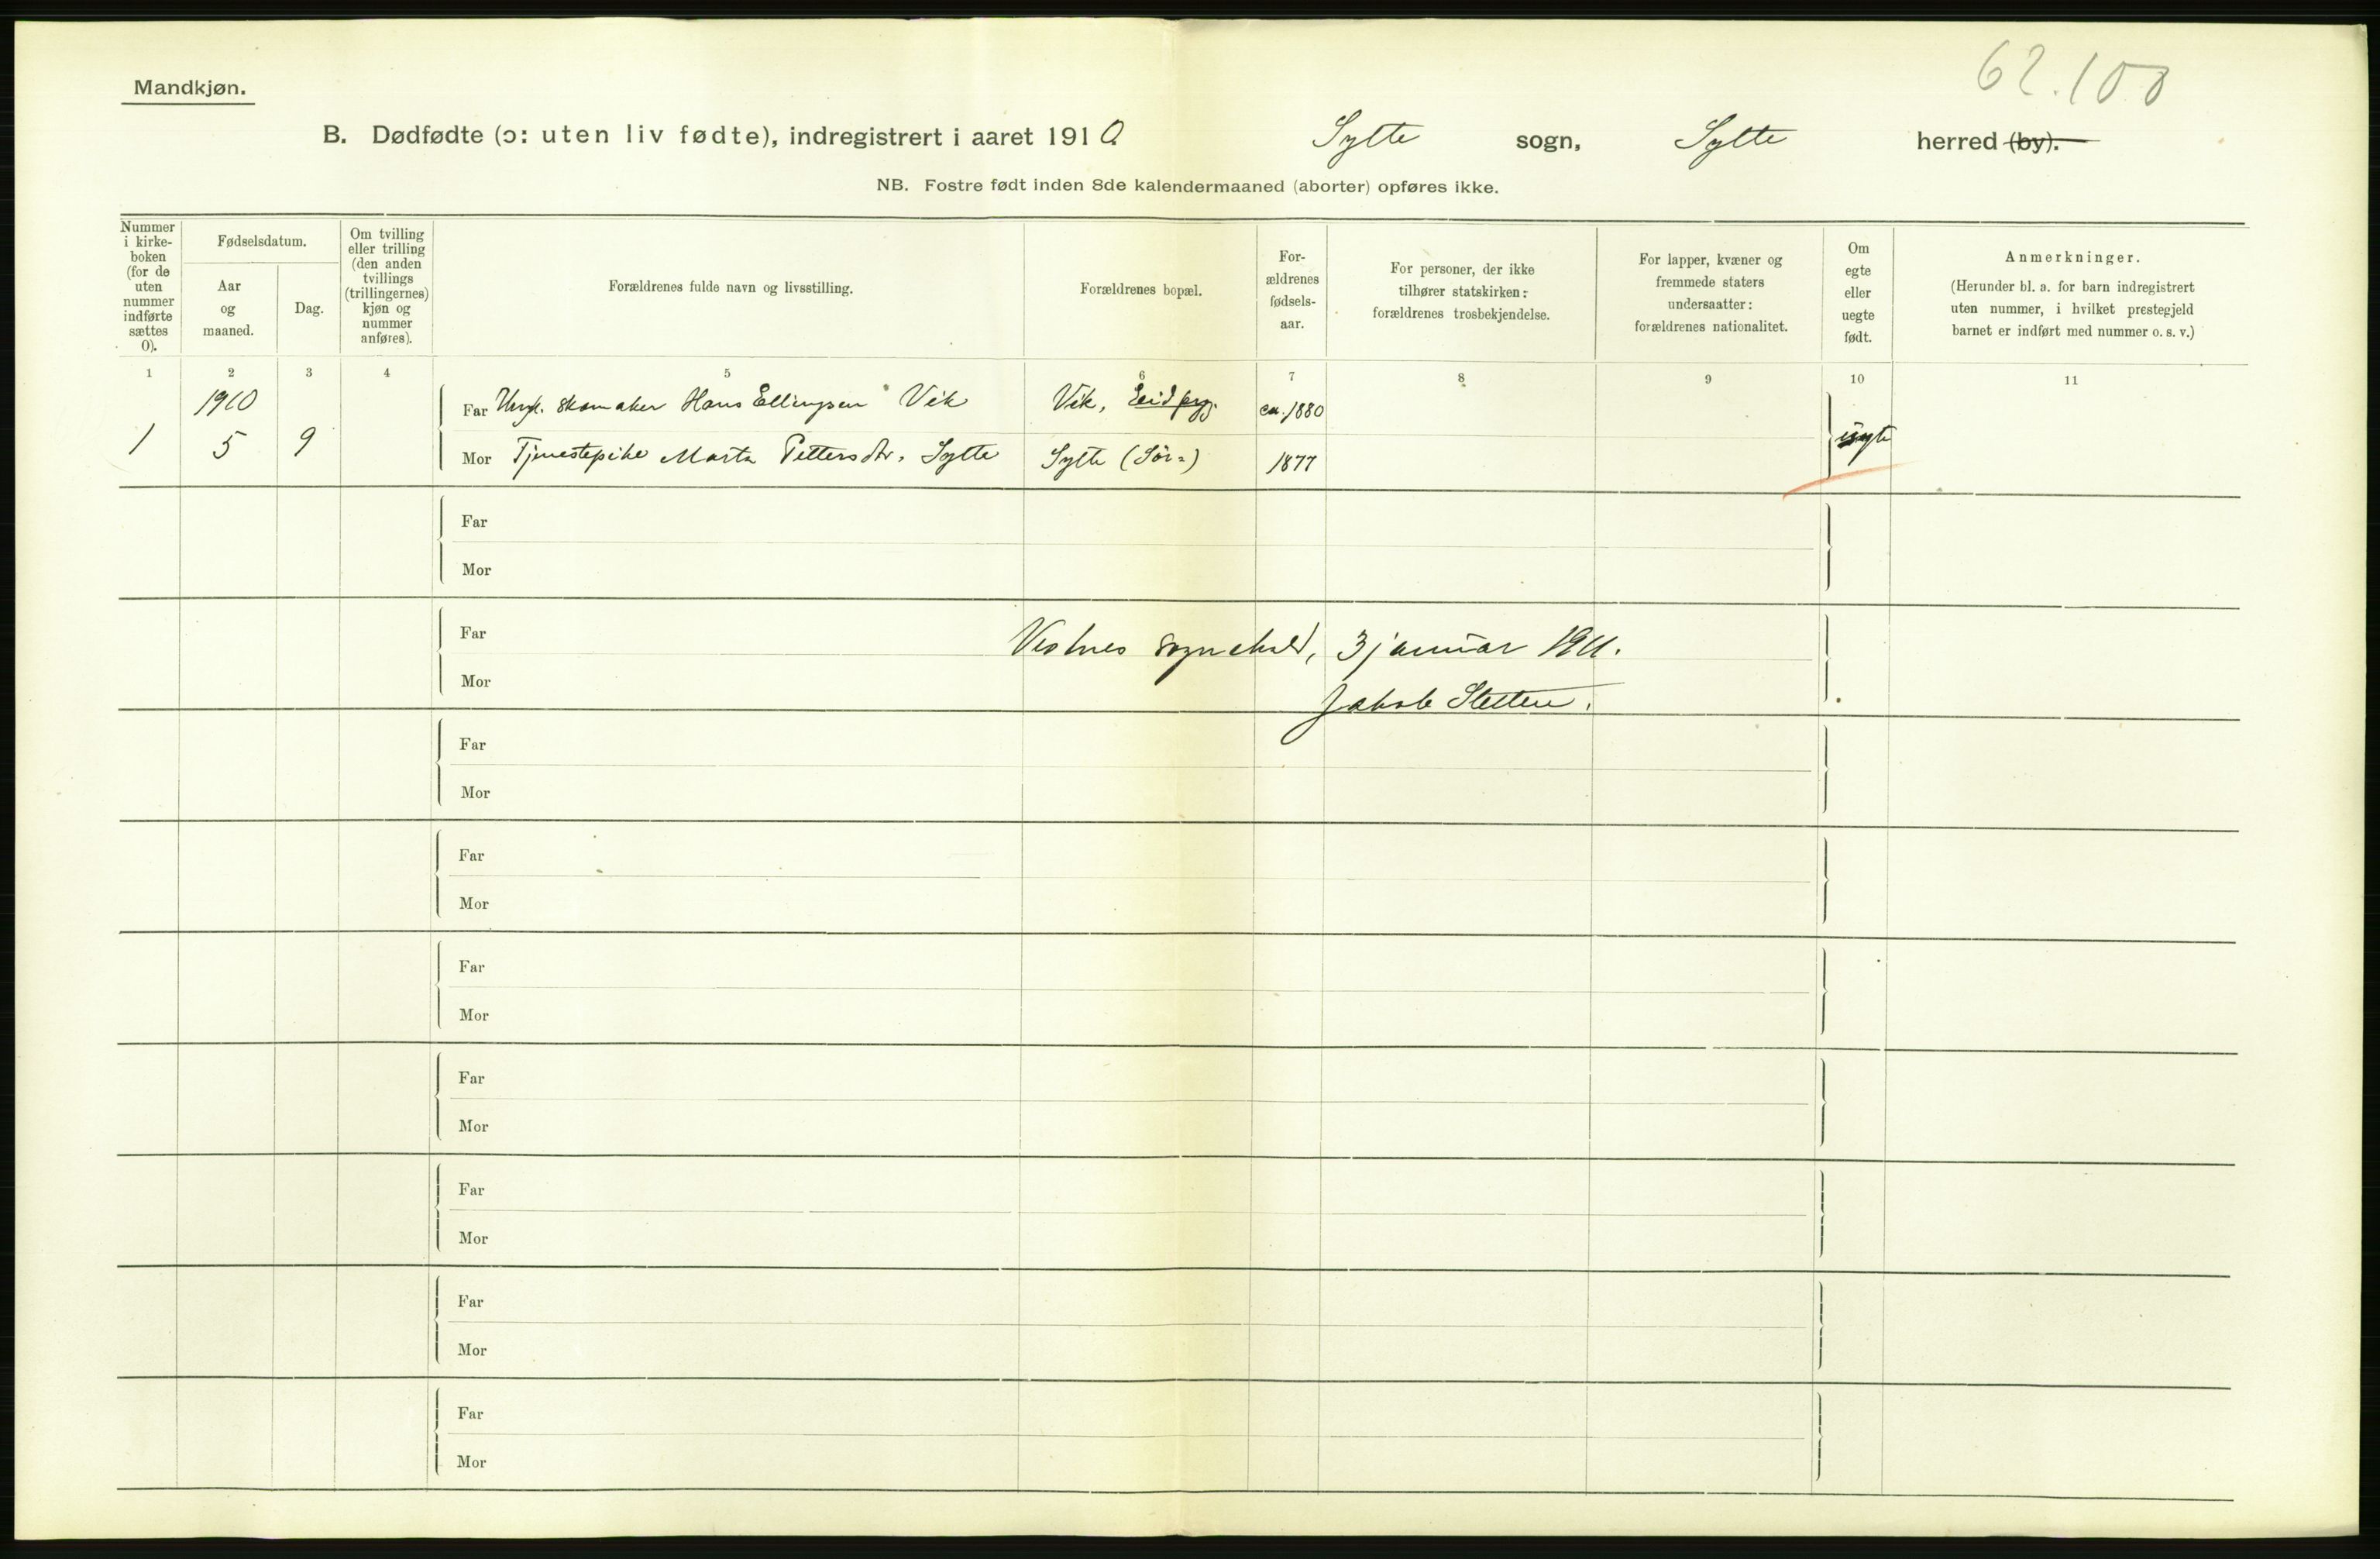 62.100
Mandkjøn.
B. Dødfødte (ɔ: uten liv fødte), indregistrert i aaret 1910. Sylte sogn, Sylte herred (by).
NB. Fostre født inden 8de kalendermaaned (aborter) opføres ikke.
Nummer
i kirke-
boken
(for de
uten
nummer
indførte
sættes
0).
Fødselsdatum.
Aar
og
maaned.
Dag.
Om tvilling
eller trilling
(den anden
tvillings
(trillingernes)
kjøn og
nummer
anføres).
Forældrenes fulde navn og livsstilling.
Forældrenes bopæl.
For-
ældrenes
fødsels-
aar.
For personer, der ikke
tilhører statskirken:
forældrenes trosbekjendelse.
For lapper, kvæner og
fremmede staters
undersaatter:
forældrenes nationalitet.
Om
egte
eller
uegte
født.
Anmerkninger.
(Herunder bl. a. for barn indregistrert
uten nummer, i hvilket prestegjeld
barnet er indført med nummer o. s. v.)
1 2 3 4 5 6 7 8 9 10 11
1910 Far Ungk. skomaker Hans Ellingsen Vik Vik, ca. 1880
1 5 9 Mor Tjenestepike Marta Pettersdtr. Sylte Sylte (Sør-) 1877
Far
Mor
Far Vestnes 3 januar 1911.
Mor Jakob Sletten.
Far
Mor
Far
Mor
Far
Mor
Far
Mor
Far
Mor
Far
Mor
Far
Mor